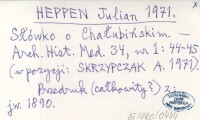 HEPPEN Julian 1971.
x
Słówko o Chałubińskim. —
Arch. Hist. Med. 34, nr 1: 44-45
(w pozycji: SKRZYPCZAK A. 1971).
Przedruk (całkowity?) z:
jw. 1890.